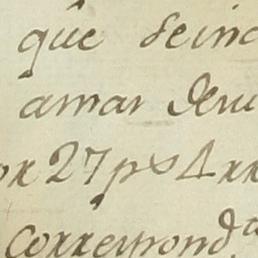 que seinc
amar deve
or 27 ps 4 rr
Correspond.a